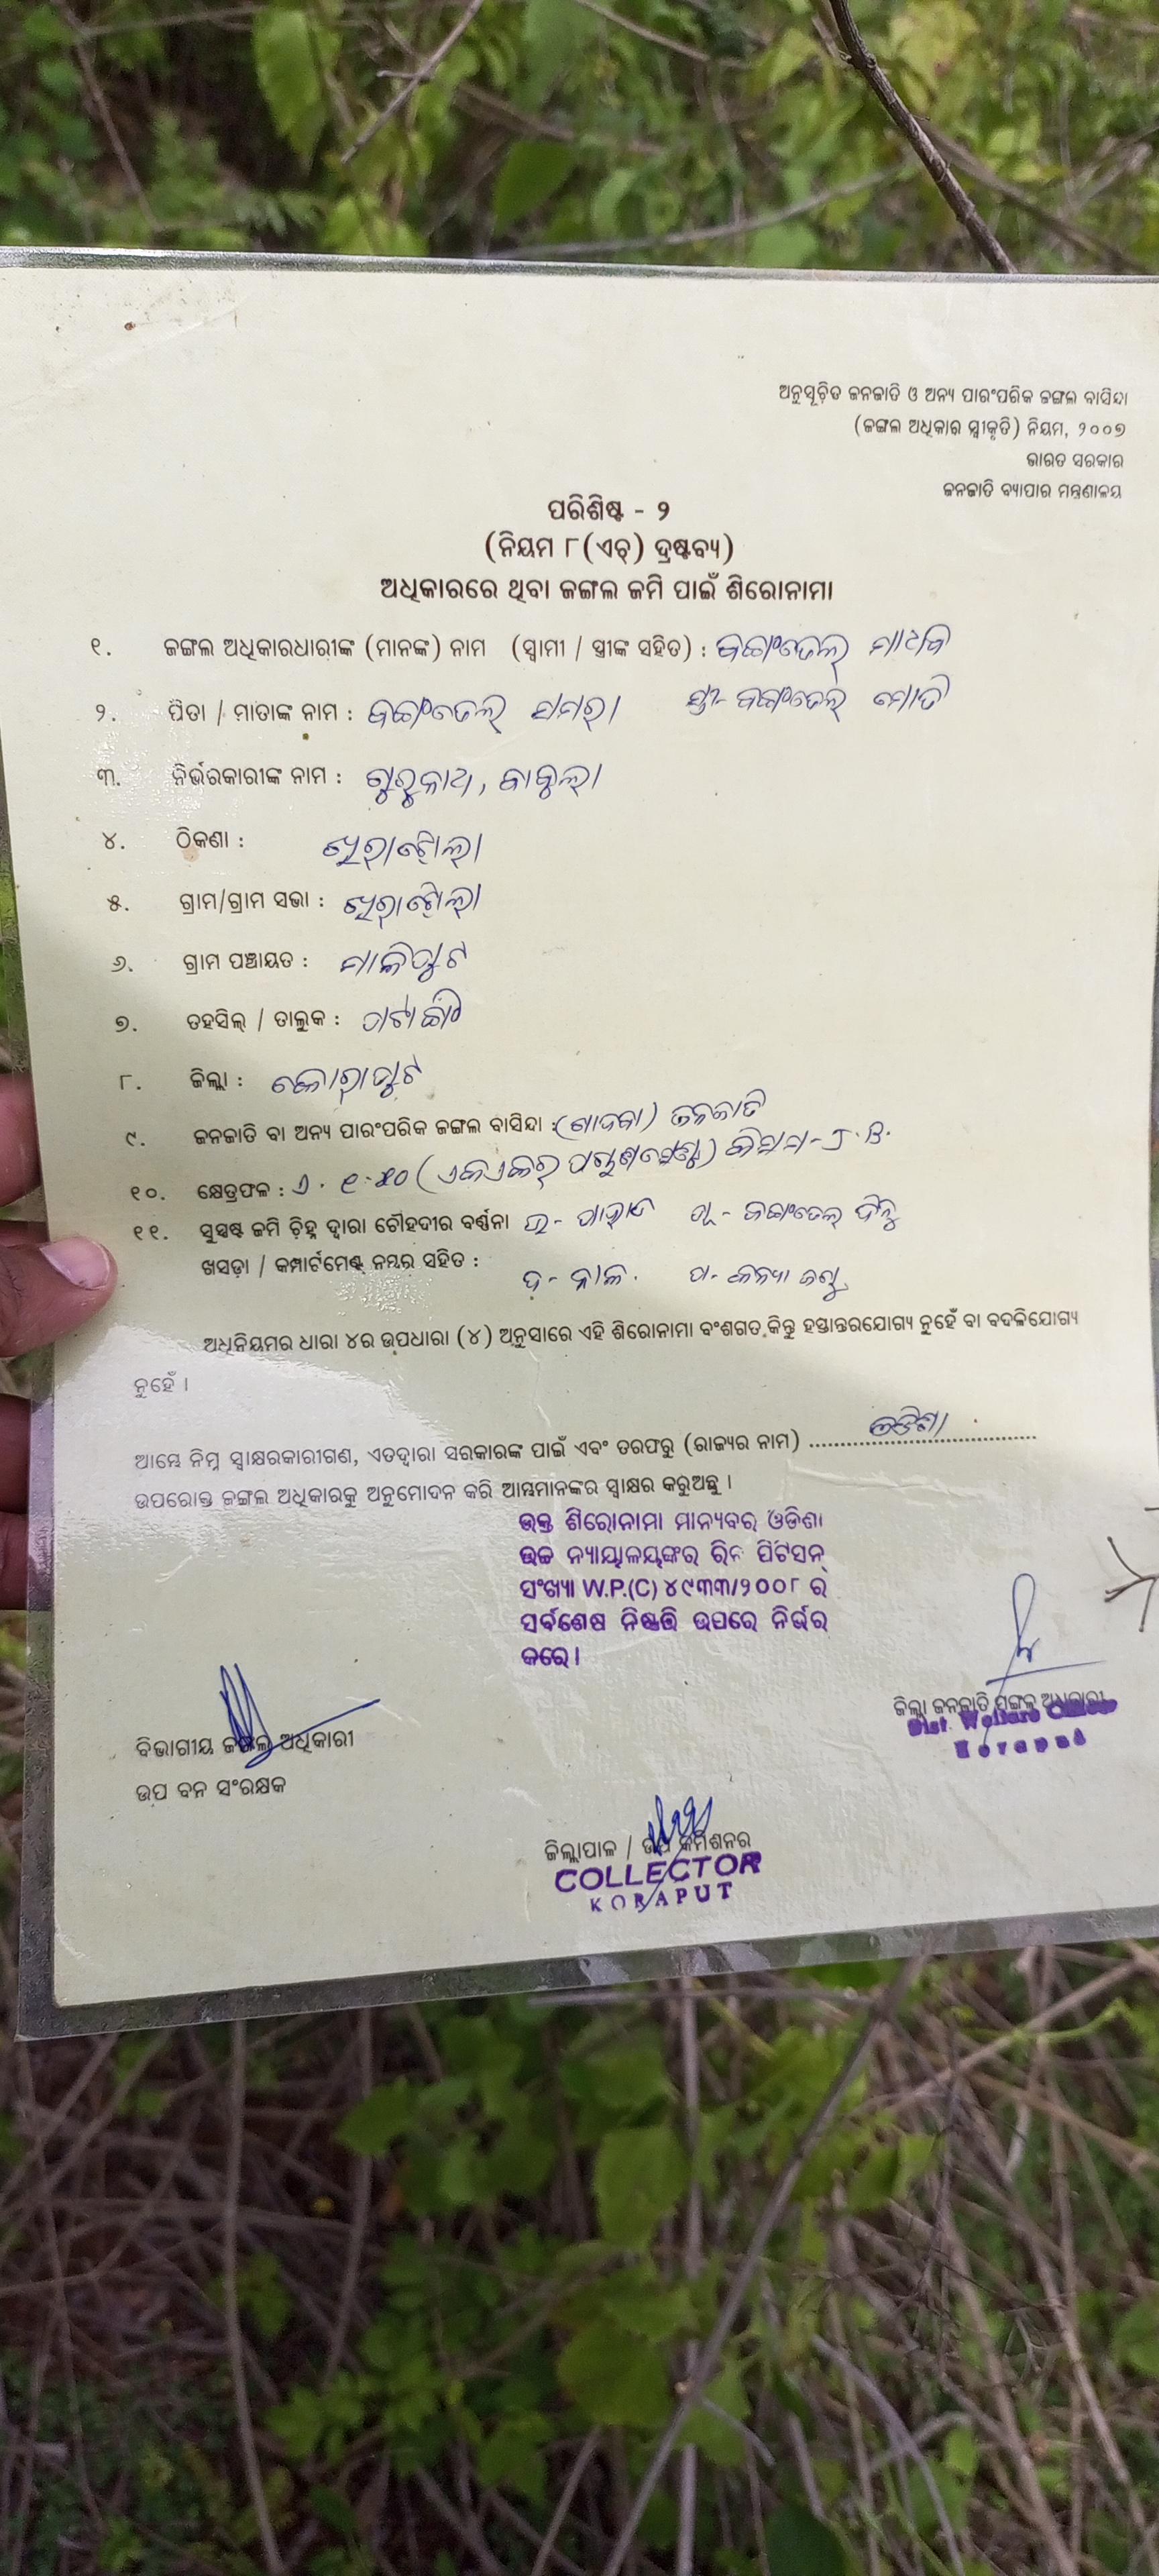 ଅନୁସୂଚିତ ଜନଜାତି ଓ ଅନ୍ୟ ପାରଂପରିକ ଜଙ୍ଗଲ ବାସିନ୍ଦା
(ଜଙ୍ଗଲ ଅଧିକାର ସ୍ୱୀକୃତି) ନିୟମ, ୨୦୦୭
ଭାରତ ସରକାର
ଜନଜାତି ବ୍ୟାପାର ମନ୍ତ୍ରଣାଳୟ
ପରିଶିଷ୍ଟ - ୨
(ନିୟମ ୮(ଏଚ୍) ଦ୍ରଷ୍ଟବ୍ୟ)
ଅଧିକାରରେ ଥିବା ଜଙ୍ଗଲ ଜମି ପାଇଁ ଶିରୋନାମା
୧. ଜଙ୍ଗଲ ଅଧିକାରଧାରୀଙ୍କ (ମାନଙ୍କ) ନାମ (ସ୍ୱାମୀ / ସ୍ତ୍ରୀଙ୍କ ସହିତ) : ମାଧବ
୨. ପିତା / ମାତାଙ୍କ ନାମ : ସମରା ସ୍ତ୍ରୀ- ମୋତି
୩. ନିର୍ଭରକାରୀଙ୍କ ନାମ : ଗୁରୁନାଥ, ବାବୁଲା
୪. ଠିକଣା : ଖେରାଟୋଲା
୫. ଗ୍ରାମ/ଗ୍ରାମ ସଭା : ଖେରାଟୋଲା
୬. ଗ୍ରାମ ପଞ୍ଚାୟତ : ମାଳିପୁଟ
୭. ତହସିଲ୍ / ତାଲୁକ : ପଟାଙ୍ଗି
୮. ଜିଲ୍ଲା : କୋରାପୁଟ
୯. ଜନଜାତି ବା ଅନ୍ୟ ପାରଂପରିକ ଜଙ୍ଗଲ ବାସିନ୍ଦା : (ଗାଦବା) ଜନଜାତି
୧୦. କ୍ଷେତ୍ରଫଳ : ଏ. ୧.୫୦ (ଏକଏକର୍ ପଚାଶ) କିସମ-J.B.
୧୧. ସୁସ୍ପଷ୍ଟ ଜମି ଚିହ୍ନ ଦ୍ୱାରା ଚୌହଦୀର ବର୍ଣ୍ଣନା ଉ- ପାହାଡ ପୂ-
ଖସଡ଼ା / କମ୍ପାର୍ଟମେଣ୍ଟ ନମ୍ବର ସହିତ : ଦ- ନାଳ. ପ-
ଅଧିନିୟମର ଧାରା ୪ର ଉପଧାରା (୪) ଅନୁସାରେ ଏହି ଶିରୋନାମା ବଂଶଗତ କିନ୍ତୁ ହସ୍ତାନ୍ତରଯୋଗ୍ୟ ନୁହେଁ ବା ବଦଳିଯୋଗ୍ୟ
ନୁହେଁ ।
ଆମ୍ଭେ ନିମ୍ନ ସ୍ୱାକ୍ଷରକାରୀଗଣ, ଏତଦ୍ୱାରା ସରକାରଙ୍କ ପାଇଁ ଏବଂ ତରଫରୁ (ରାଜ୍ୟର ନାମ) ଓଡିଶା
ଉପରୋକ୍ତ ଜଙ୍ଗଲ ଅଧିକାରକୁ ଅନୁମୋଦନ କରି ଆମ୍ଭମାନଙ୍କର ସ୍ୱାକ୍ଷର କରୁଅଛୁ ।
ଉକ୍ତ ଶିରୋନାମା ମାନ୍ୟବର ଓଡିଶା
ଉଚ୍ଚ ନ୍ୟାୟାଳୟଙ୍କର ରିଟ ପିଟିସନ୍
ସଂଖ୍ୟା W.P.(C) ୪୯୩୩/୨୦୦୮ ର
ସର୍ବଶେଷ ନିଷ୍ପତ୍ତି ଉପରେ ନିର୍ଭର
କରେ ।
ଜିଲ୍ଲା ଜନଜାତି ମଙ୍ଗଳ ଅଧିକାରୀ
Dist. Welfare Officer
Koraput
ବିଭାଗୀୟ ଜଙ୍ଗଲ ଅଧିକାରୀ
ଉପ ବନ ସଂରକ୍ଷକ
ଜିଲ୍ଲାପାଳ / ଉପ କମିଶନର
COLLECTOR
KORAPUT